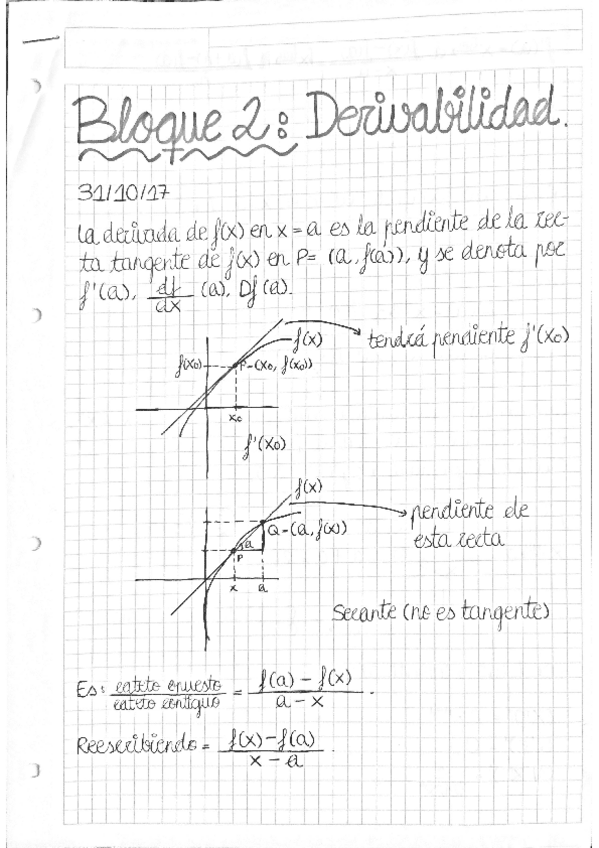 Bloque 2: Derivabilidad.
31/10/17
La derivada de f(x) en x = a es la pendiente de la rec-
ta tangente de f(x) en P= (a, f(a)), y se denota por
f'(a), df/dx (a), Df(a).
f(x)
tendrá pendiente f'(x0)
f(x0)
P-(x0, f(x0))
x0
f'(x0)
f(x)
pendiente de
esta recta
Q-(a, f(x))
a
P
x
a
Secante (no es tangente)
Es: cateto opuesto / cateto contiguo = f(a) - f(x) / a - x.
Reescribiendo = f(x) - f(a) / x - a.